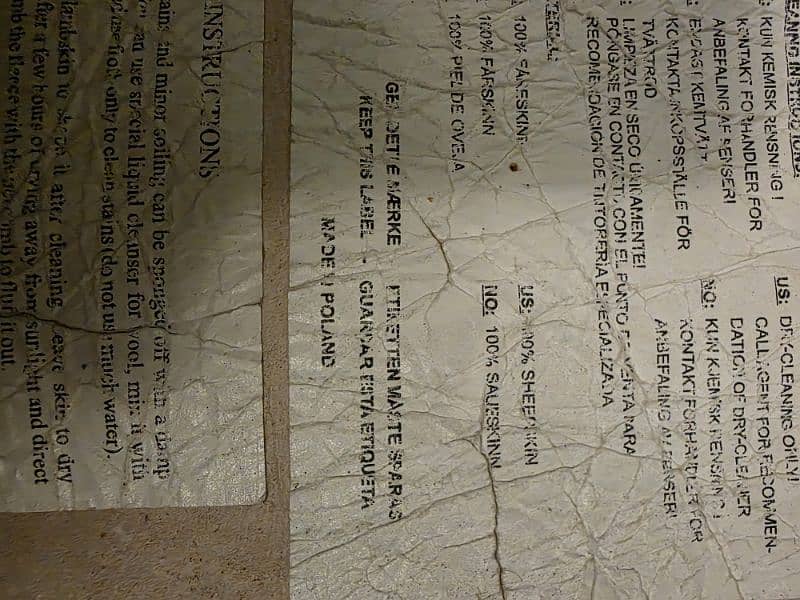 EANING INSTRUCTIONS:
: KUN KEMISK RENSNING !
KONTAKT FORHANDLER FOR
ANBEFALING AF RENSERI
: ENDAST KEMTVÄTT
KONTAKTA INKÖPSSTÄLLE FÖR
TVÄTTRÅD
US: DRY-CLEANING ONLY!
CALL AGENT FOR RECOMMEN-
DATION OF DRY-CLEANER
NO: KUN KJEMISK RENSNING !
KONTAKT FORHANDLER FOR
ANBEFALING AV RENSERI
: LIMPIEZA EN SECO ÚNICAMENTE!
PÓNGASE EN CONTACTO CON EL PUNTO DE VENTA PARA
RECOMENDACION DE TINTORERIA ESPECIALIZADA
TERIAL:
: 100% FÅRESKIND
: 100% FÅRSKINN
: 100% PIEL DE OVEJA
US: 100% SHEEPSKIN
NO: 100% SAUESKINN
GEM DETTE MÆRKE ETIKETTEN MÅSTE SPARAS
KEEP THIS LABEL - GUARDAR ESTA ETIQUETA
MADE IN POLAND
INSTRUCTIONS
ains and minor soiling can be sponged off with a damp
can use special liquid cleanser for wool, mix it with
use froth only to clean stains (do not use much water).
lambskin to shape it after cleaning. Leave skin to dry
fter a few hours of drying away from sunlight and direct
mb the fleece with the wire comb to fluff it out.